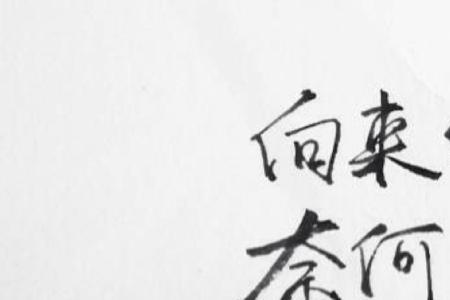 向来
奈何